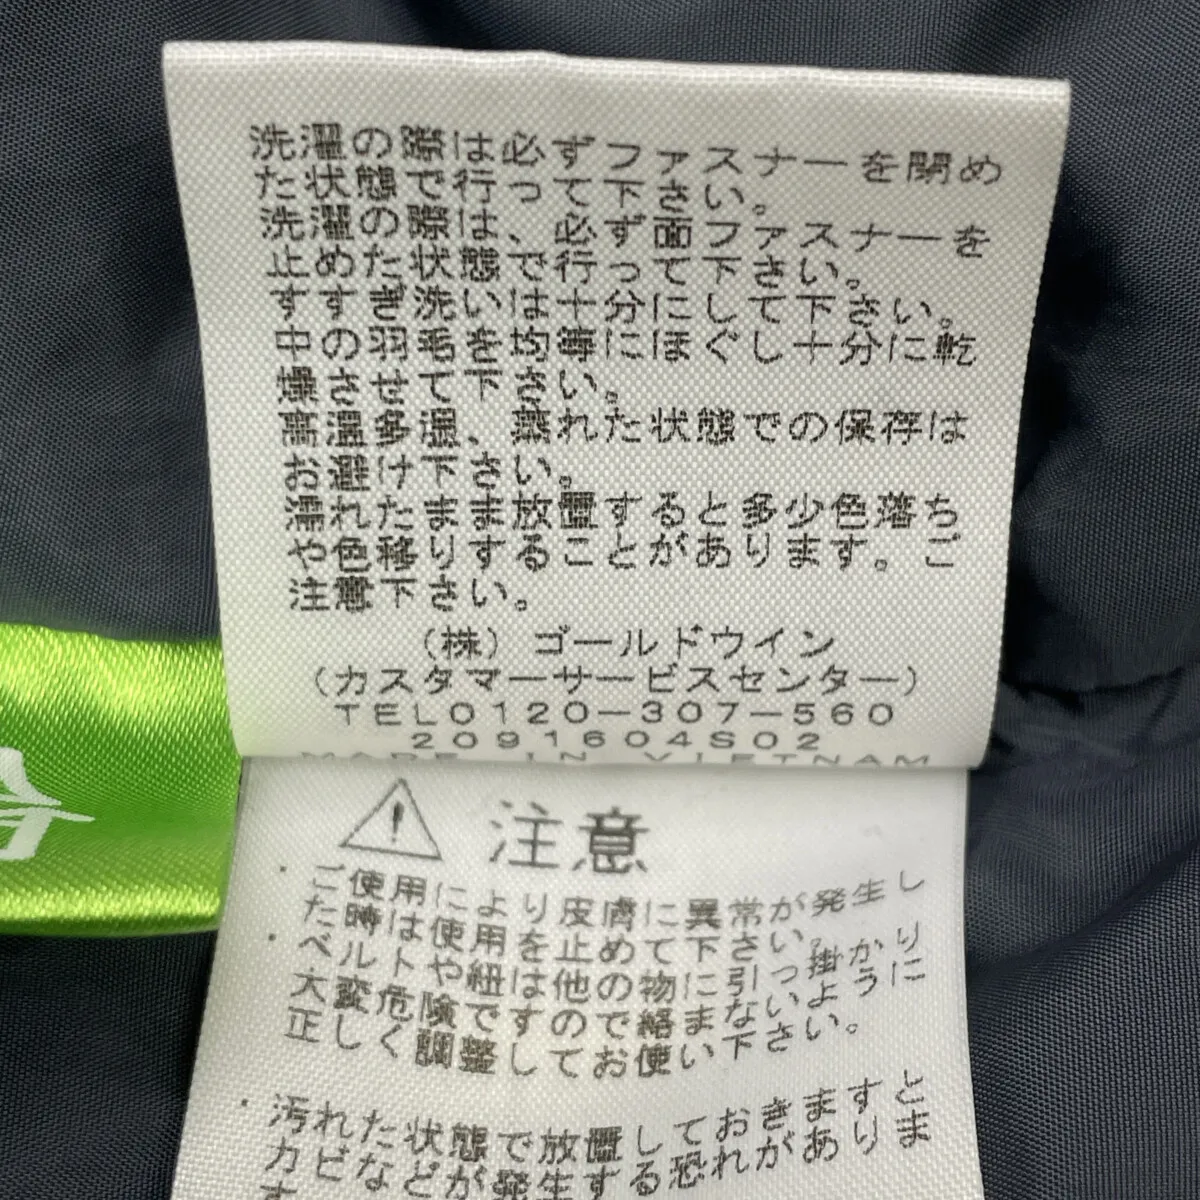 洗濯の際は必ずファスナーを閉め
た状態で行って下さい。
洗濯の際は、必ず面ファスナーを
止めた状態で行って下さい。
すすぎ洗いは十分にして下さい。
中の羽毛を均等にほぐし十分に乾
燥させて下さい。
高温多湿、蒸れた状態での保存は
お避け下さい。
濡れたまま放置すると多少色落ち
や色移りすることがあります。ご
注意下さい。
(株)ゴールドウイン
(カスタマーサービスセンター)
TEL0120-307-560
2091604S02
MADE IN VIETNAM
注意
・ご使用により皮膚に異常が発生し
た時は使用を止めて下さい。
・ベルトや紐は他の物に引っ掛かり
大変危険ですので絡まないように
正しく調整してお使い下さい。
・汚れた状態で放置しておきますと
カビなどが発生する恐れがありま
す